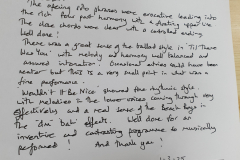 The opening solo phrases were evocative leading into
the rich folk past harmony with a floating upper line
The close chords were clear with a controlled ending.
Well done!
There was a good sense of the ballad style in 'Til There
Was You' with melody and harmony well balanced and
assured intonation. Occasional entries could have been
neater but this is a very small point in what was a
fine performance.
'Wouldn't It Be Nice' showed fine rhythmic style
with melodies in the lower voices coming through very
effectively and a real sense of the Beach Boys in
the 'du bah' effects. Well done for an
inventive and contrasting programme so musically
performed! And thank you!